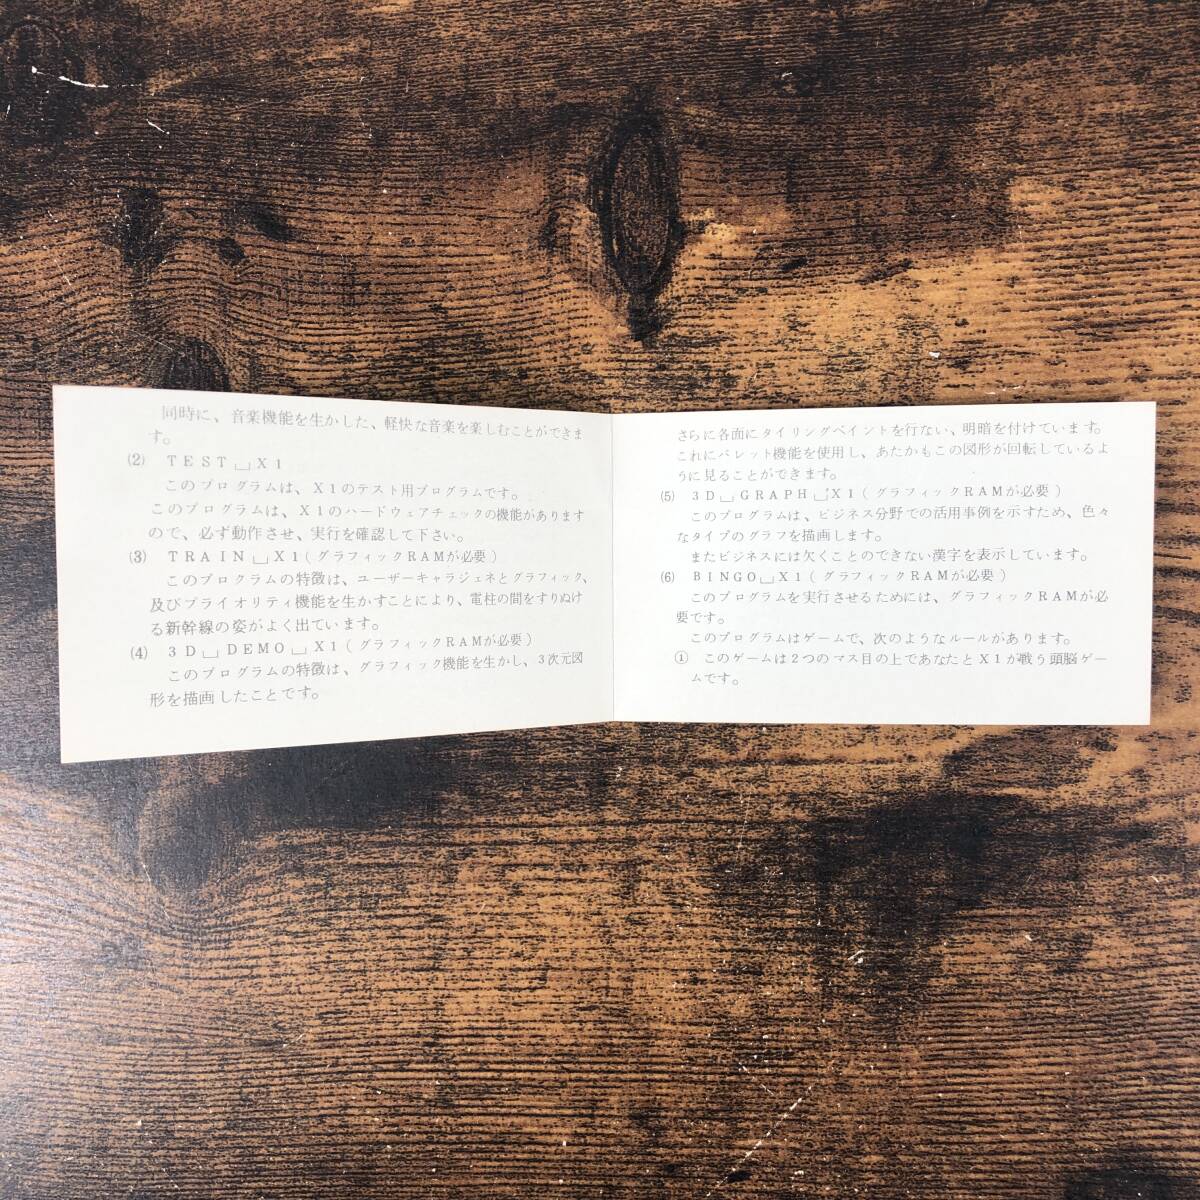 同時に、音楽機能を生かした、軽快な音楽を楽しむことができま
す。
(2) TEST␣X1
このプログラムは、X1のテスト用プログラムです。
このプログラムは、X1のハードウェアチェックの機能があります
ので、必ず動作させ、実行を確認して下さい。
(3) TRAIN␣X1(グラフィックRAMが必要)
このプログラムの特徴は、ユーザーキャラジェネとグラフィック、
及びプライオリティ機能を生かすことにより、電柱の間をすりぬけ
る新幹線の姿がよく出ています。
(4) 3D␣DEMO␣X1(グラフィックRAMが必要)
このプログラムの特徴は、グラフィック機能を生かし、3次元図
形を描画したことです。
さらに各面にタイリングペイントを行ない、明暗を付けています。
これにパレット機能を使用し、あたかもこの図形が回転しているよ
うに見ることができます。
(5) 3D␣GRAPH␣X1(グラフィックRAMが必要)
このプログラムは、ビジネス分野での活用事例を示すため、色々
なタイプのグラフを描画します。
またビジネスには欠くことのできない漢字を表示しています。
(6) BINGO␣X1(グラフィックRAMが必要)
このプログラムを実行させるためには、グラフィックRAMが必
要です。
このプログラムはゲームで、次のようなルールがあります。
① このゲームは2つのマス目の上であなたとX1が戦う頭脳ゲー
ムです。